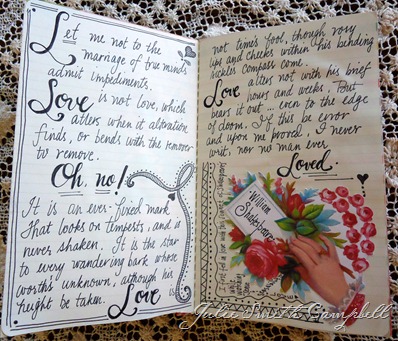 Let me not to the
marriage of true minds
admit impediments.
Love is not love, which
alters when it alteration
finds, or bends with the remover
to remove.
Oh, no!
It is an ever-fixed mark
That looks on tempests, and is
never shaken. It is the star
to every wandering bark whose
worth's unknown, although his
height be taken. Love is
not time's fool, though rosy
lips and cheeks within his bending
sickles compass come.
Love alters not with his brief
hours and weeks. But
bears it out... even to the edge
of doom. If this be error
and upon me proved, I never
writ, nor no man ever
Loved.
William
Shakespeare
Julie Smith Campbell